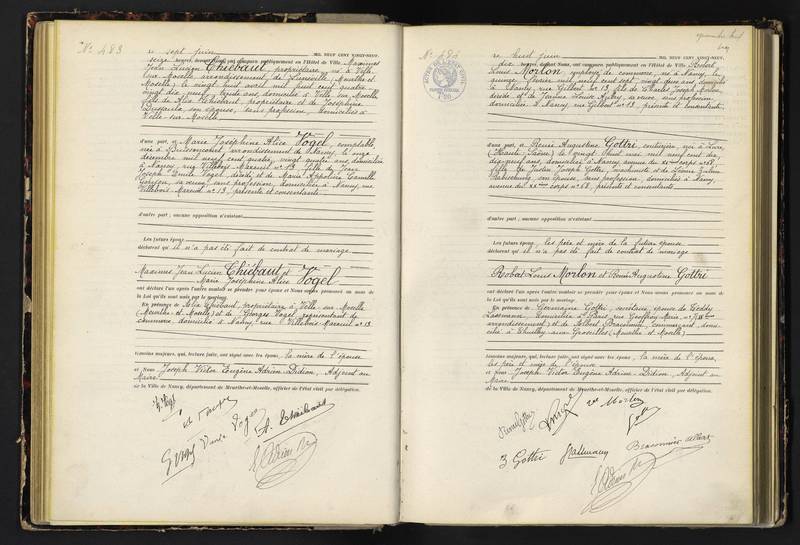 N° 483
Le sept juin MIL NEUF CENT VINGT-NEUF,
seize heures, devant Nous, ont comparu publiquement en l'Hôtel de Ville Maxime
Jean Lucien Thiébaut, propriétaire, né à Velle
sur Moselle, arrondissement de Lunéville (Meurthe et
Moselle) le vingt huit avril mil huit cent quatre
vingt dix neuf, ans, domicilié à Velle sur Moselle,
fils de Thiébaut, propriétaire et de Joséphine
son épouse, sans profession, domiciliés à
Velle sur Moselle
d'une part, et Marie Joséphine Alice Vogel, comptable,
née à arrondissement de Nancy, le onze
décembre mil neuf cent quatre, vingt quatre ans, domiciliée
à Nancy, rue Villebois Mareuil n° 13, fille de Jean
Joseph Emile Vogel, décédé et de Marie Appoline Camille
sa veuve, sans profession, domiciliée à Nancy, rue
Villebois Mareuil n° 13, présente et consentante
d'autre part ; aucune opposition n'existant
Les futurs époux
déclarent qu'il n'a pas été fait de contrat de mariage
Maxime Jean Lucien Thiébaut et
Marie Joséphine Alice Vogel
ont déclaré l'un après l'autre vouloir se prendre pour époux et Nous avons prononcé au nom de
la Loi qu'ils sont unis par le mariage.
En présence de Thiébaut, propriétaire, à Velle sur Moselle
(Meurthe et Moselle) et de Georges Vogel, représentant de
commerce, domicilié à Nancy, rue Villebois Mareuil n° 13
témoins majeurs, qui, lecture faite, ont signé avec les époux, la mère de l'épouse
et Nous Joseph Victor Eugène Adrien Didion, Adjoint au
Maire
de la Ville de Nancy, département de Meurthe-et-Moselle, officier de l'état civil par délégation.
Vogel
A. Thiébaut
N° 484
Le huit juin MIL NEUF CENT VINGT-NEUF,
dix heures, devant Nous, ont comparu publiquement en l'Hôtel de Ville Robert
Louis Morlon, employé de commerce, né à Nancy, le
quinze mil neuf cent sept, vingt deux ans, domicilié
à Nancy, rue Gilbert n° 13, fils de Charles Joseph Morlon,
décédé et de Louise sa veuve, sans profession,
domiciliée à Nancy, rue Gilbert n° 13, présente et consentante,
d'une part, et Renée Augustine Gottri, couturière, née à Lure
(Haute Saône) le vingt huit mai mil neuf cent dix,
dix neuf ans, domiciliée à Nancy, avenue du XXème corps n° 68,
fille de Justin Joseph Gottri, machiniste et de
son épouse, sans profession, domiciliés à Nancy,
avenue du XXème corps n° 68, présents et consentants
d'autre part ; aucune opposition n'existant
Les futurs époux, les père et mère de la future épouse
déclarent qu'il n'a pas été fait de contrat de mariage
Robert Louis Morlon et Renée Augustine Gottri
ont déclaré l'un après l'autre vouloir se prendre pour époux et Nous avons prononcé au nom de
la Loi qu'ils sont unis par le mariage.
En présence de Germaine Gottri, secrétaire, épouse de Teddy
domiciliée à Paris, rue Geoffroy Marie,
arrondissement) et de Albert Braconnier, commerçant, domi-
cilié à Thuilley aux Groseilles (Meurthe et Moselle)
témoins majeurs, qui, lecture faite, ont signé avec les époux, la mère de l'époux,
les père et mère de l'épouse
et Nous Joseph Victor Eugène Adrien Didion, Adjoint au
Maire
de la Ville de Nancy, département de Meurthe-et-Moselle, officier de l'état civil par délégation.
Renée Gottri
Vve Morlon
J. Gottri
Braconnier Albert